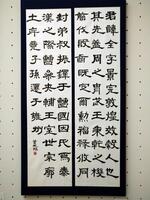 君諱全字景完敦煌效穀人也
其先蓋周之胄武王秉乾之機
翦伐殷商既定爾勳福祿攸同
封弟叔振鐸于曹國因氏焉秦
漢之際曹參夾輔王室世宗廓
土斥竟子孫遷于雍州